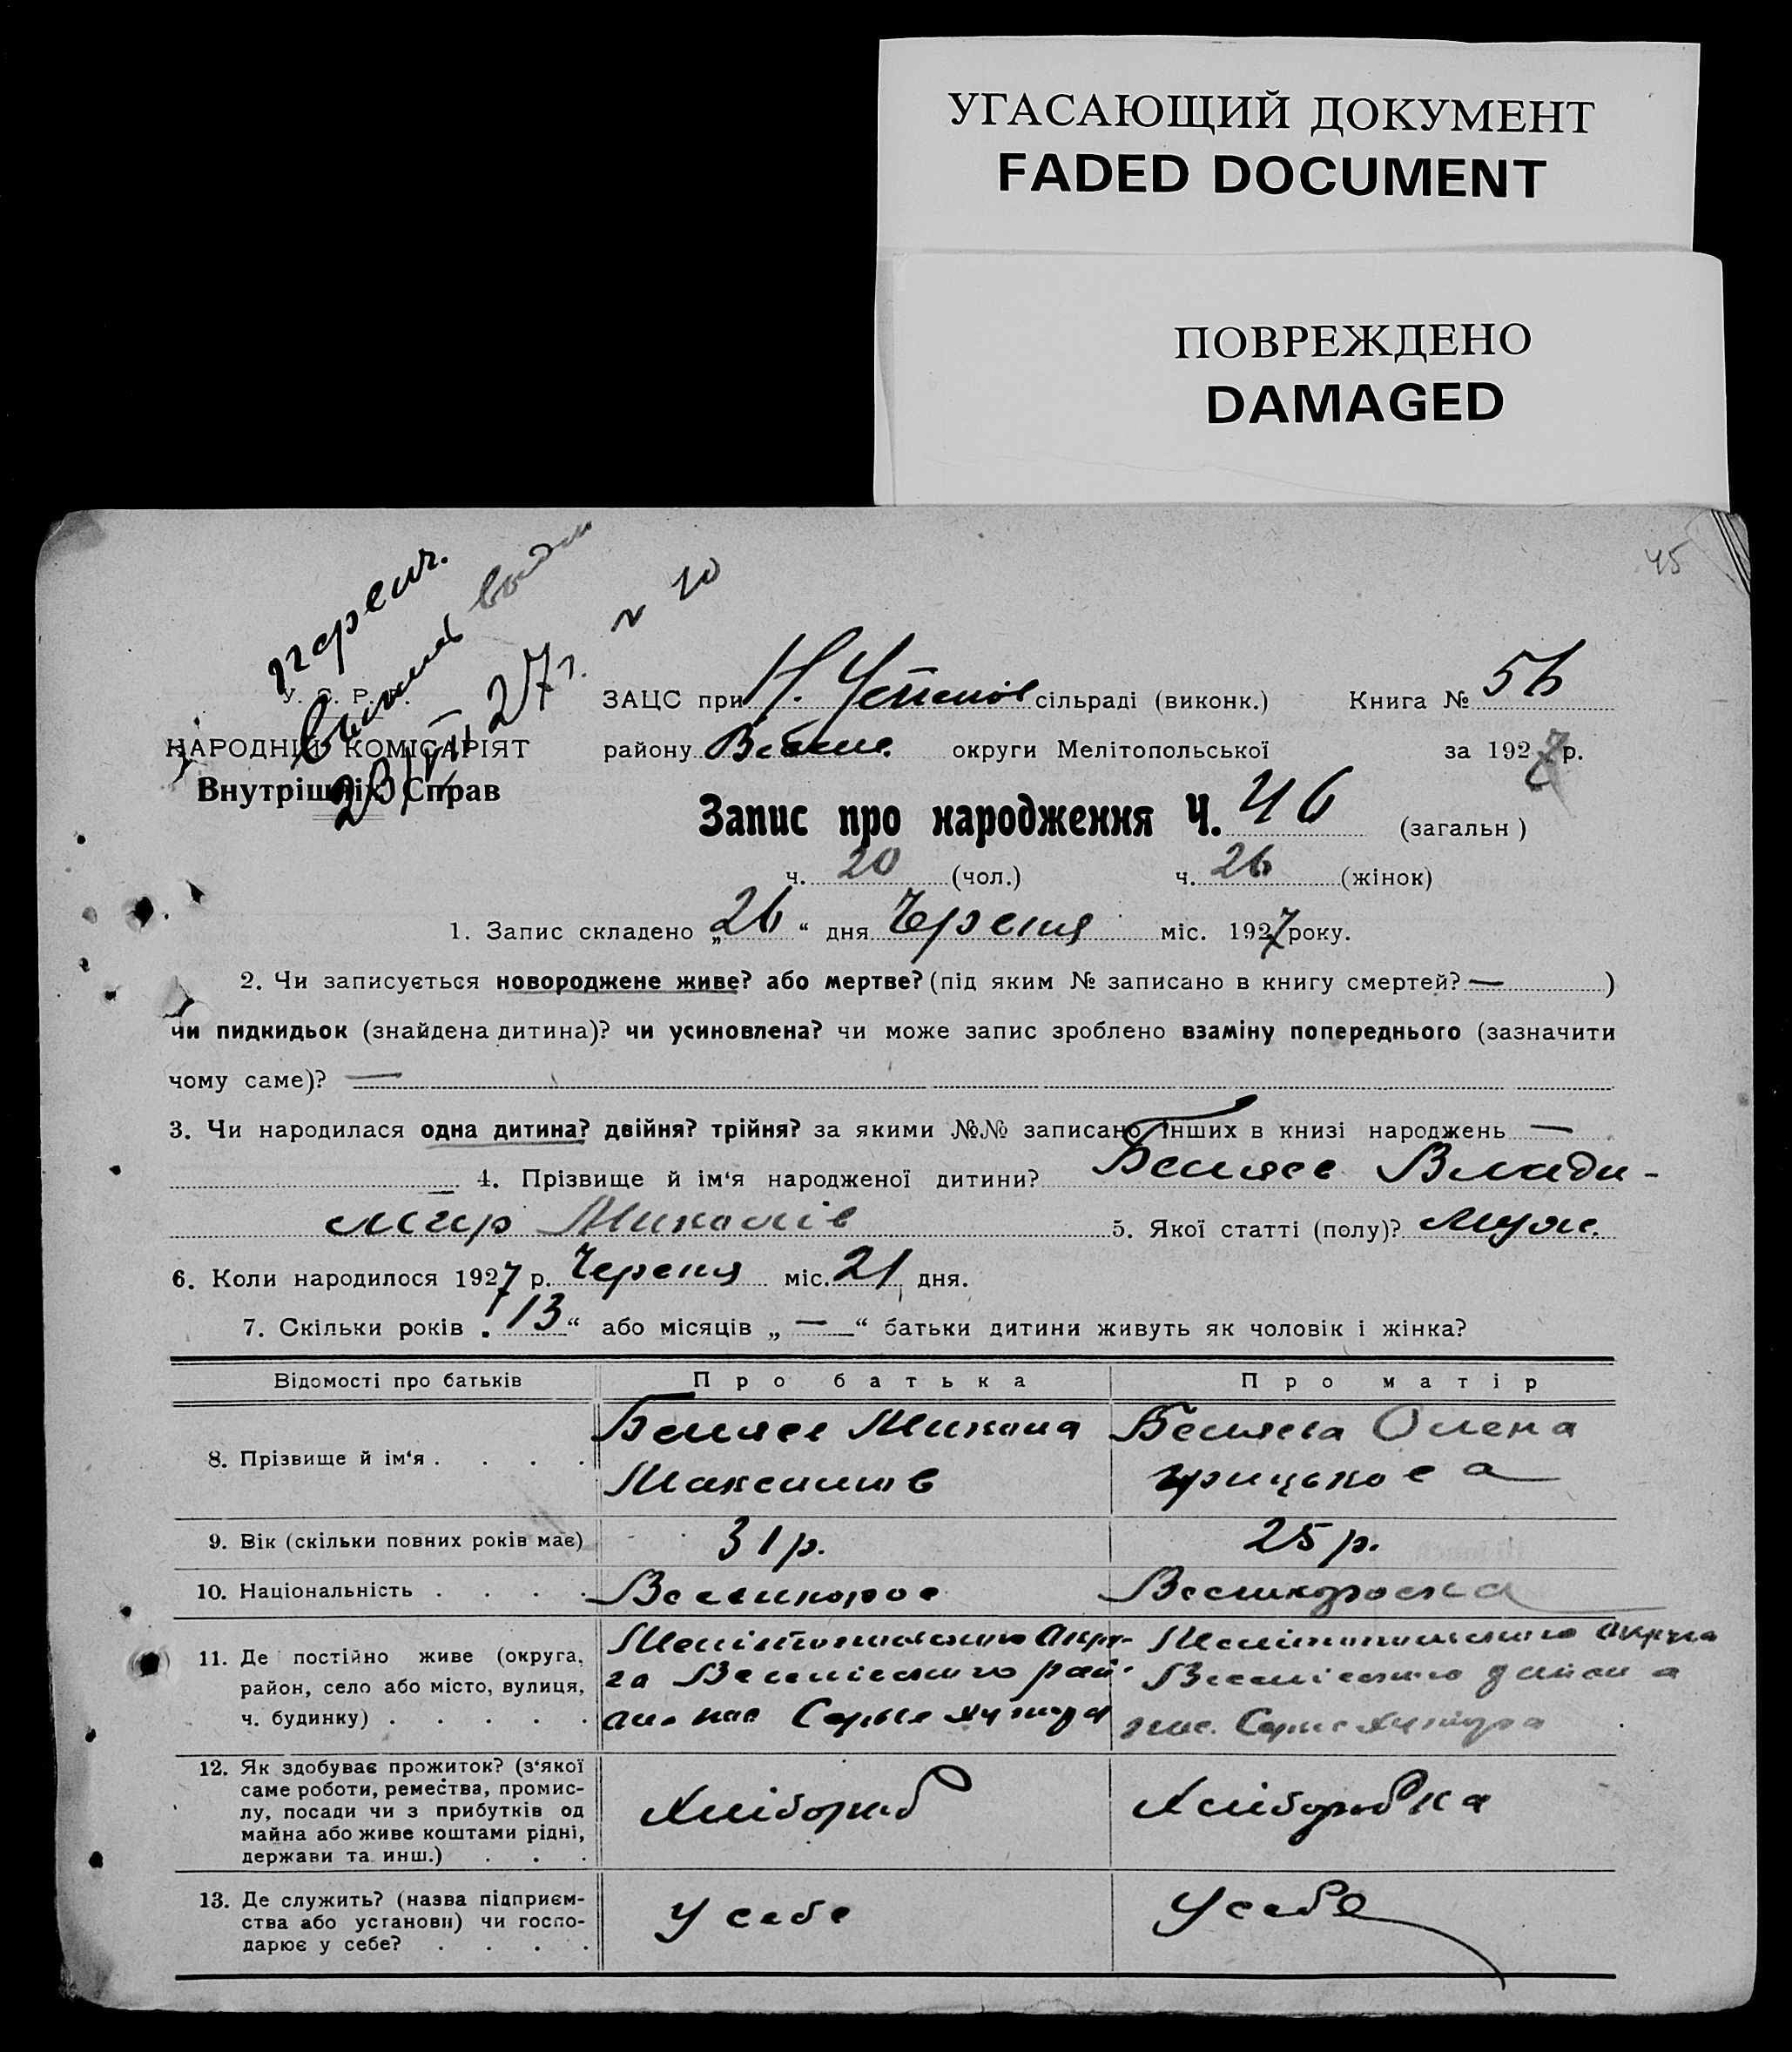 УГАСАЮЩИЙ ДОКУМЕНТ
FADED DOCUMENT
ПОВРЕЖДЕНО
DAMAGED
45
№ 10
27 г.
У. С. Р. Р.
НАРОДНІЙ КОМІСАРІЯТ
Внутрішніх Справ
ЗАЦС при Н. сільраді (виконк.) Книга № 56
району округи Мелітопольської за 1927 р.
Запис про народження Ч. 46 (загальн)
ч. 20 (чол.) ч. 26 (жінок)
1. Запис складено „26“ дня Червня міс. 1927 року.
2. Чи записується новороджене живе? або мертве? (під яким № записано в книгу смертей? — )
чи пидкидьок (знайдена дитина)? чи усиновлена? чи може запис зроблено взаміну попереднього (зазначити
чому саме)? —
3. Чи народилася одна дитина? двійня? трійня? за якими №№ записано інших в книзі народжень —
— 4. Прізвище й ім‘я народженої дитини? Беляев Влади-
мир Миколаів 5. Якої статті (полу)? муж.
6. Коли народилося 1927 р. Червня міс. 21 дня.
7. Скільки років „13“ або місяців „—“ батьки дитини живуть як чоловік і жінка?
Відомості про батьків Про батька Про матір
8. Прізвище й ім‘я . . . . Беляев Микола Беляева Олена
Максимов Грицькова
9. Вік (скільки повних років має) 31 р. 25 р.
10. Національність . . . . Великорос Великороска
11. Де постійно живе (округа, Мелітопольского Окру- Мелітопольского Округа
район, село або місто, вулиця, га Веселівского рай- Веселівского района
ч. будинку) . . . . . она пос Серые хутора пос. Серые хутора
12. Як здобуває прожиток? (з‘якої
саме роботи, ремества, промис-
лу, посади чи з прибутків од Хлібороб Хліборобка
майна або живе коштами рідні,
держави та инш.) . . .
13. Де служить? (назва підприєм-
ства або установи) чи госпо- У себе У себе
дарює у себе? . . . .